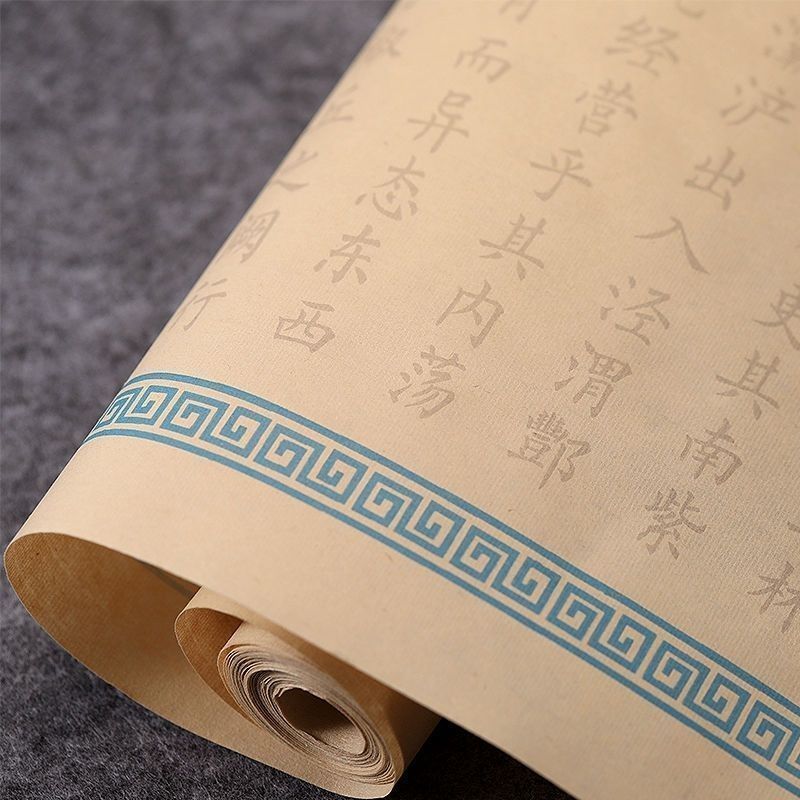 林
更其南紫
浐出入泾渭酆
经营乎其内荡
而异态东西
丘之阙行